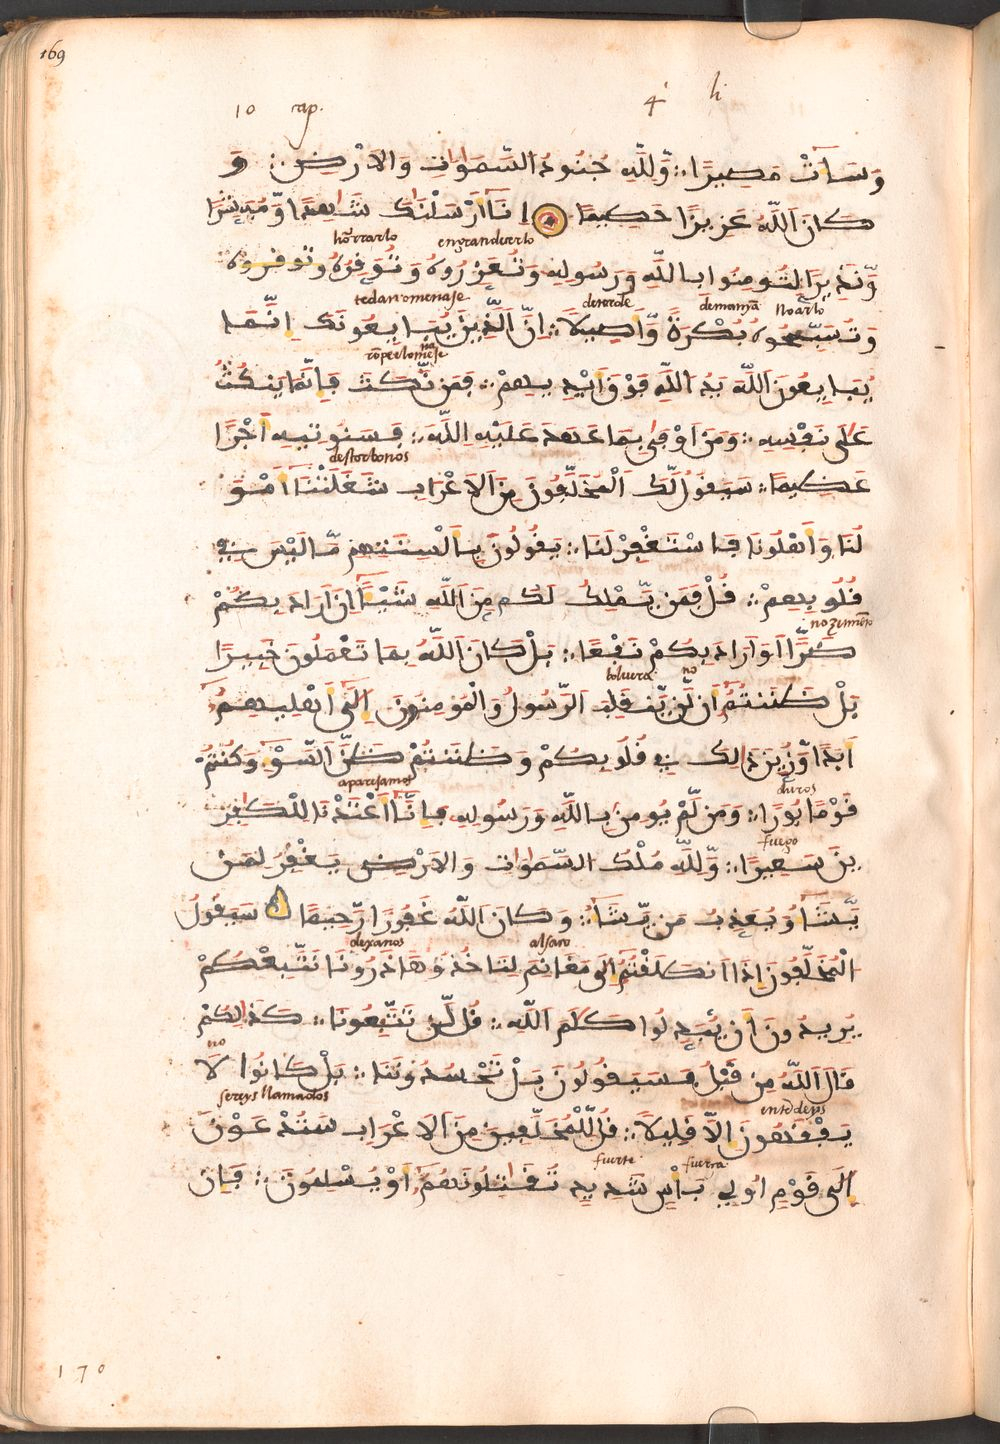 169
10 cap. 4 li
وَسَاءَتْ مَصِيرًا وَّلِلَّهِ جُنُودُ السَّمَوَاتِ وَالَارْضِ وَ
كَانَ اللَّهُ عَزِيزًا حَكِيمًا اِنَّا أَرْسَلْنَكَ شَهِدًا وَّمُبَشِّرًا
honrrarlo engrandecerlo
وَّنَذِيرًا لِتُومِنُوا بِاللَّهِ وَرَسُولِهِ وَتُعَزِّرُوهُ وَتُوَقِّرُوهُ وتوقروه
tedan omenaje de tarde de mañana lloarlo
وَتُسَبِّحُوهُ بُكْرَةً وَّأَصِيلًا إِنَّ الَّذِينَ يُبَايِعُونَكَ اِنَّمَا
rompe el omenaje
يُبَايِعُونَ اللَّهَ يَدُ اللَّهِ فَوْقَ أَيْدِيهِمْ فَمَن نَّكَثَ فَإِنَّمَا يَنكُثُ
عَلَى نَفْسِهِ وَمَنَ اَوْفَى بِمَا عَهَدَ عَلَيْهِ اللَّهَ فَسَنُوتِيهِ أَجْرًا
destorbonos
عَظِيمًا سَيَقُولُ لَكَ الْمُخَلَّفُونَ مِنَ الَاعْرَابِ شَغَلَتْنَا أَمْوَ
لُنَا وَأَهْلُونَا فَاسْتَغْفِرْ لَنَا يَقُولُونَ بِأَلْسِنَتِهِم مَّا لَيْسَ فِي
قُلُوبِهِمْ قُلْ فَمَن يَّمْلِكُ لَكُم مِنَ اللَّهِ شَيْئًا اِنَ اَرَادَ بِكُمْ
nozimiento
ضَرًّا اَوَ اَرَادَ بِكُمْ نَفْعًا بَلْ كَانَ اللَّهُ بِمَا تَعْمَلُونَ خَبِيرًا
bolvera no
بَلْ ظَنَنتُمُ أَن لَّن يَّنقَلِبَ الرَّسُولُ وَالْمُومِنُونَ إِلَى أَهْلِيهِمُ
أَبَدًا وَّزُيِّنَ ذَالِكَ فِي قُلُوبِكُمْ وَظَنَنتُمْ ظَنَّ السَّوْءِ وَكُنتُمْ
aparejamos duros
قَوْمًا بُورًا وَمَن لَّمْ يُومِن بِاللَّهِ وَرَسُولِهِ فَإِنَّا أَعْتَدْنَا لِلْكَفِرِ
fuego
ينَ سَعِيرًا وَّلِلَّهِ مُلْكُ السَّمَوَاتِ وَالَارْضِ يَغْفِرُ لِمَن
يَّشَاءُ وَيُعَذِّبُ مَن يَّشَاءُ وَكَانَ اللَّهُ غَفُورًا رَّحِيمًا سَيَقُولُ
dexanos alfaro
الْمُخَلَّفُونَ إِذَا اَنطَلَقْتُمُ إِلَى مَغَانِمَ لِتَاخُذُوهَا ذَرُونَا نَتَّبِعْكُمْ
يُرِيدُونَ أَن يُبَدِّلُوا كَلَمَ اللَّهِ قُل لَّن تَتَّبِعُونَا كَذَالِكُمْ
no
قَالَ اللَّهُ مِن قَبْلُ فَسَيَقُولُونَ بَلْ تَحْسُدُونَنَا بَلْ كَانُوا لَا
sereys llamados entēdeys
يَفْقَهُونَ إِلَّا قَلِيلًا قُل لِّلْمُخَلَّفِينَ مِنَ الَاعْرَابِ سَتُدْعَوْنَ
fuerte fuerça
إِلَى قَوْمٍ اُولِي بَأْسٍ شَدِيدٍ تُقَتِلُونَهُمُ أَوْ يُسْلِمُونَ فَإِن
170